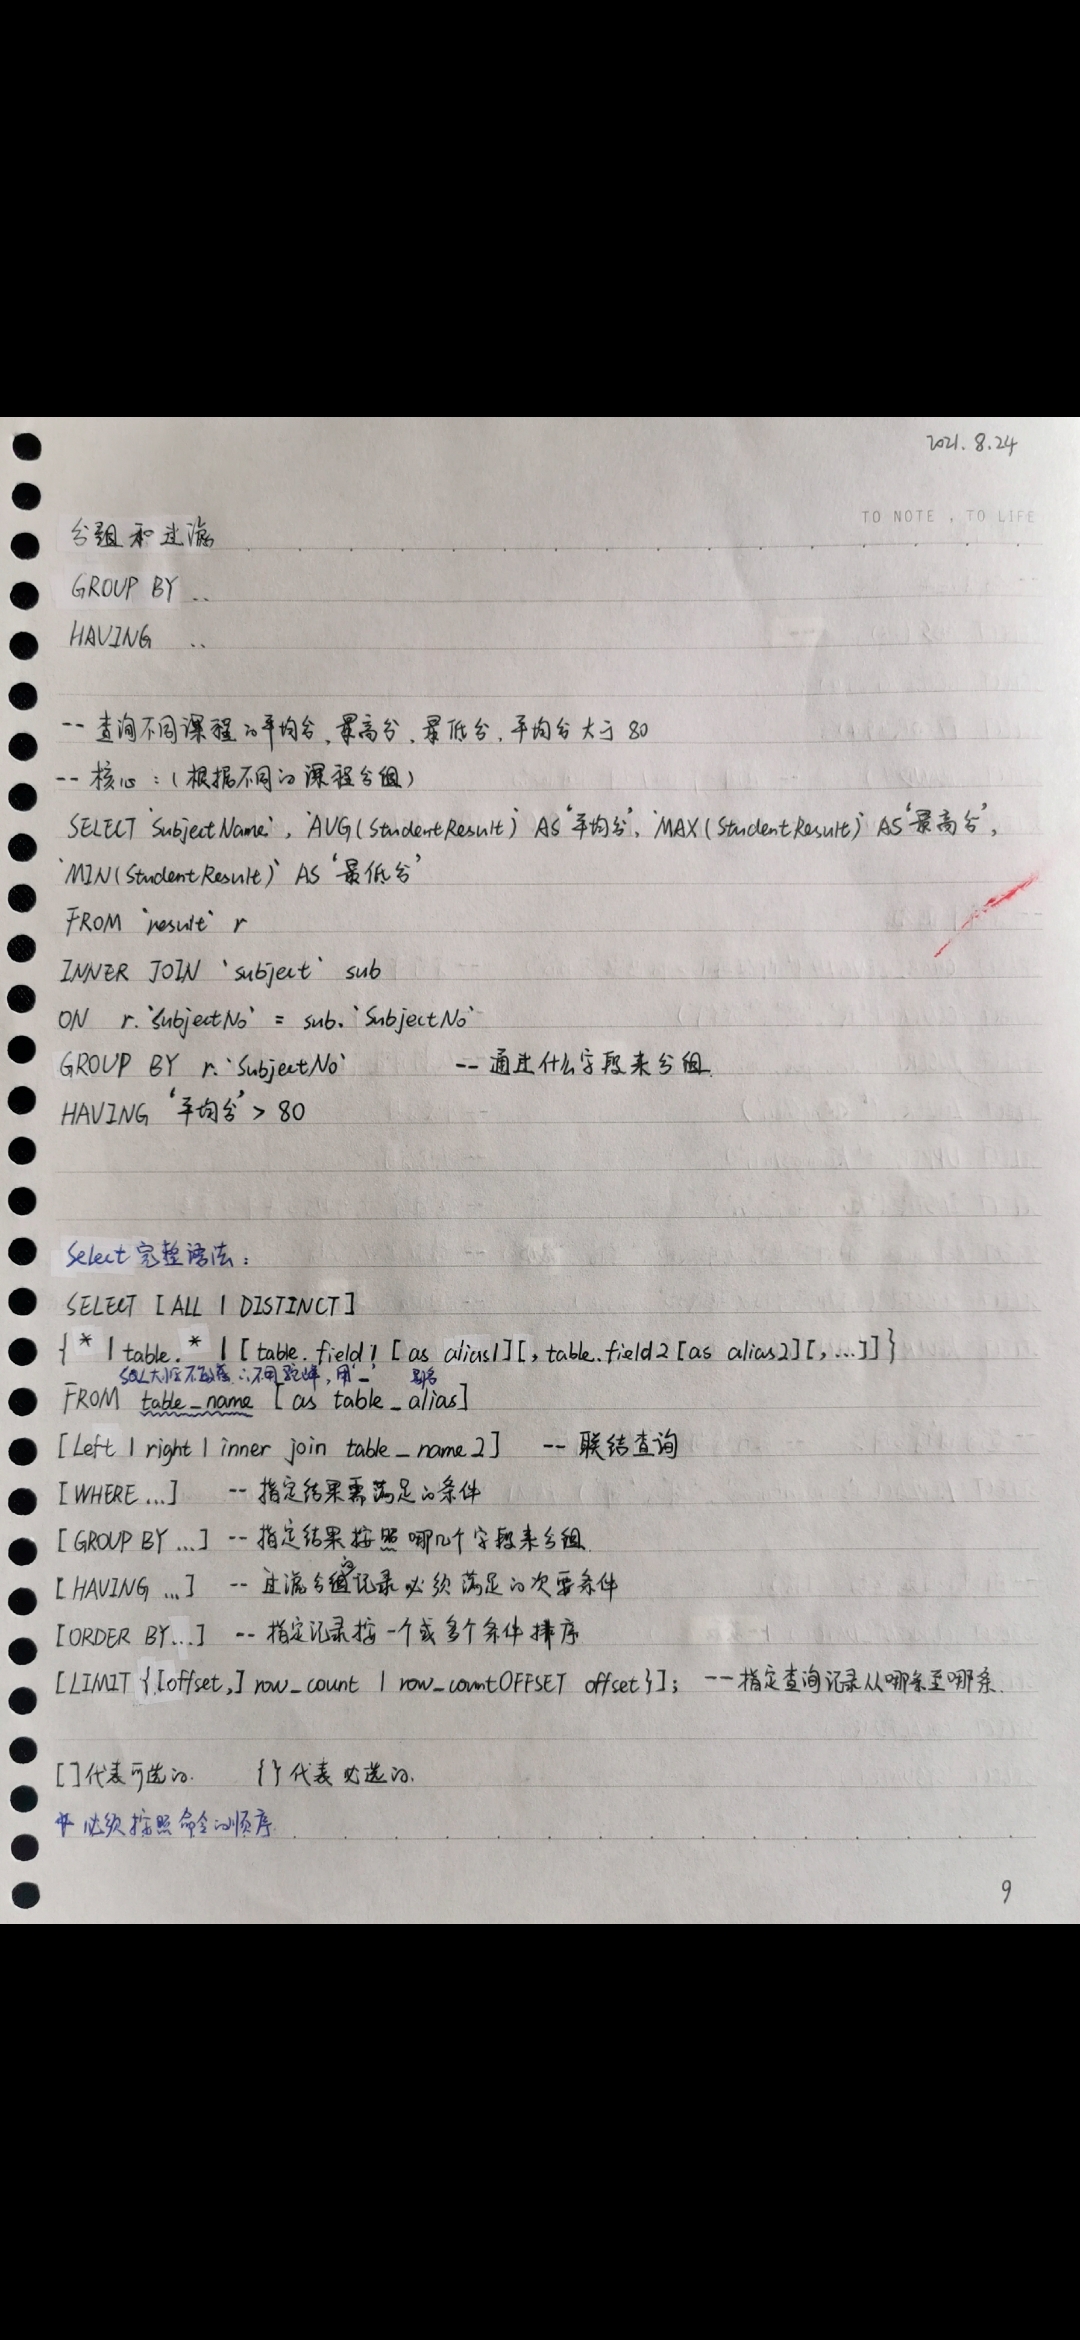 2021.8.24
TO NOTE , TO LIFE
分组和过滤
GROUP BY ..
HAVING ..
-- 查询不同课程的平均分、最高分、最低分,平均分大于 80
-- 核心:(根据不同的课程分组)
SELECT `SubjectName`, `AVG(StudentResult)` AS '平均分', `MAX(StudentResult)` AS '最高分',
`MIN(StudentResult)` AS '最低分'
FROM `result` r
INNER JOIN `subject` sub
ON r.`SubjectNo` = sub.`SubjectNo`
GROUP BY r.`SubjectNo` -- 通过什么字段来分组.
HAVING '平均分' > 80
Select 完整语法:
SELECT [ALL | DISTINCT]
{ * | table. * | [ table.field1 [as alias1][, table.field2 [as alias2][, ...]] }
SQL大小写不敏感 ∴不用驼峰,用'_' 别名
FROM table_name [as table_alias]
[Left | right | inner join table_name 2] -- 联结查询
[WHERE ...] -- 指定结果需满足的条件
[GROUP BY ...] -- 指定结果按照哪几个字段来分组.
[HAVING ...] -- 过滤分组的记录必须满足的次要条件
[ORDER BY...] -- 指定记录按一个或多个条件排序
[LIMIT {[offset,] row_count | row_countOFFSET offset}]; -- 指定查询记录从哪条至哪条.
[]代表可选的. {}代表必选的.
* 必须按照命令的顺序.
9